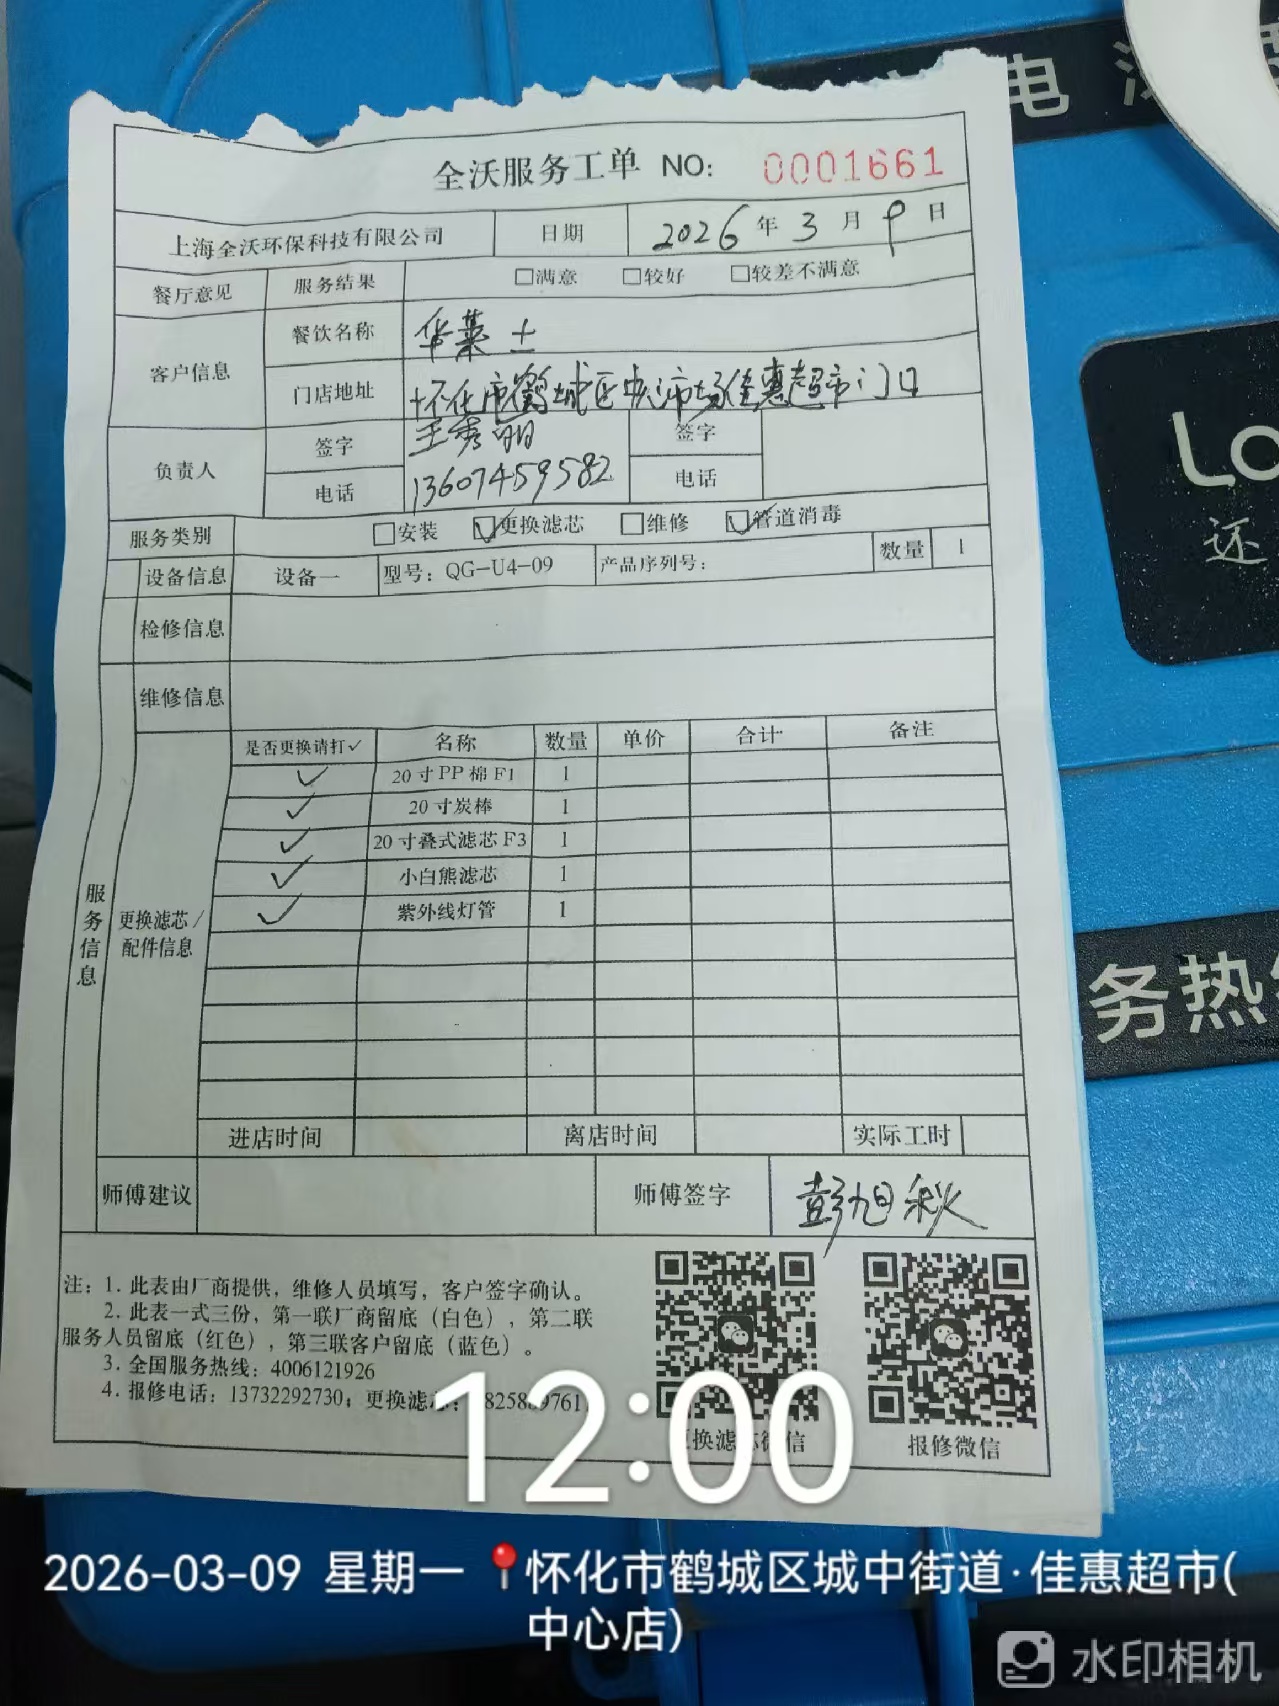 电
全沃服务工单 NO: 0001661
上海全沃环保科技有限公司 日期 2026年3月9日
餐厅意见 服务结果 □满意 □较好 □较差不满意
客户信息 餐饮名称 华莱士
门店地址 怀化市鹤城区中心市场佳惠超市门口
负责人 签字 王秀明 签字
电话 13607459582 电话
服务类别 □安装 ☑更换滤芯 □维修 ☑管道消毒
设备信息 设备一 型号：QG-U4-09 产品序列号： 数量 1
检修信息
维修信息
服务信息
更换滤芯/配件信息
是否更换请打✓ 名称 数量 单价 合计 备注
✓ 20寸PP棉F1 1
✓ 20寸炭棒 1
✓ 20寸叠式滤芯F3 1
✓ 小白熊滤芯 1
✓ 紫外线灯管 1
进店时间 离店时间 实际工时
师傅建议 师傅签字 彭旭秋
注：1. 此表由厂商提供，维修人员填写，客户签字确认。
2. 此表一式三份，第一联厂商留底（白色），第二联
服务人员留底（红色），第三联客户留底（蓝色）。
3. 全国服务热线：4006121926
4. 报修电话：13732292730；更换滤
换滤芯微信 报修微信
Lo
还
务热
12:00
2026-03-09 星期一 怀化市鹤城区城中街道·佳惠超市(
中心店)
水印相机